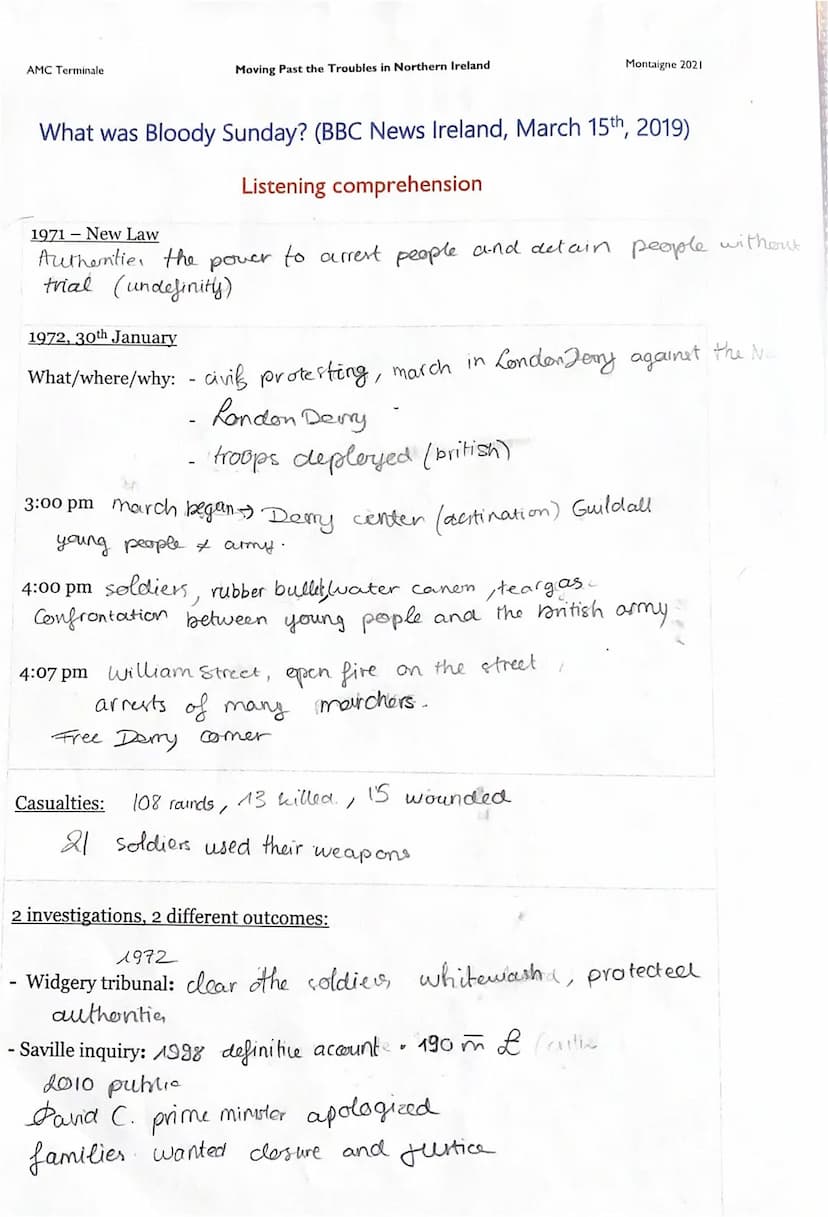 AMC Terminale Moving Past the Troubles in Northern Ireland Montaigne 2021
What was Bloody Sunday? (BBC News Ireland, March 15th, 2019)
Listening comprehension
1971 – New Law
Authorities the power to arrest people and detain people without
trial (undefinitly)
1972, 30th January
What/where/why: - civils protesting, march in LondonDerry against the
- LondonDerry
- troops deployed (british)
3:00 pm march began → Derry center (destination) Guildall
young people ≠ army.
4:00 pm soldiers, rubber bullet, water canon, teargas
Confrontation between young people and the british army
4:07 pm William Street, open fire on the street
arrests of many marchers.
Free Derry corner
Casualties: 108 rounds, 13 killed, 15 wounded
21 soldiers used their weapons
2 investigations, 2 different outcomes:
1972
- Widgery tribunal: clear the soldiers whitewash, protected
authorities
- Saville inquiry: 1998 definitive account. 190 m £
2010 public
David C. prime minister apologized
families wanted closure and justice